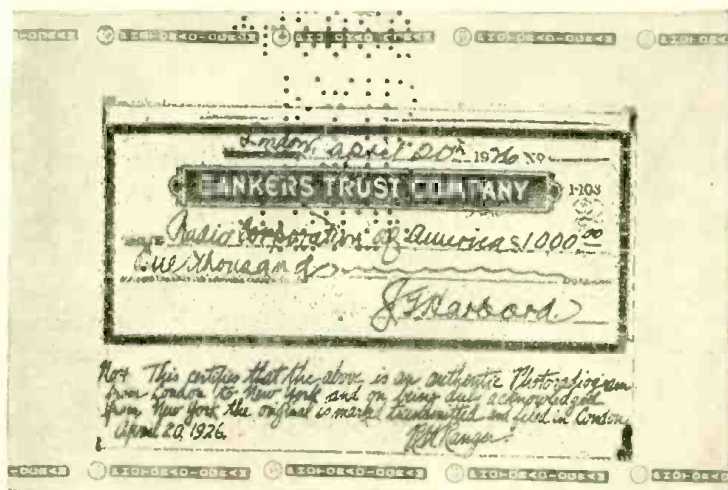 London, April 20th 1926 No
BANKERS TRUST COMPANY 1-103
Radio Corporation of America $1000 00
One thousand
J G Harbord
Note This certifies that the above is an authentic Photoradiogram
from London to New York and on being duly acknowledged
from New York the original is marked transmitted and filed in London
April 20, 1926. RH Ranger